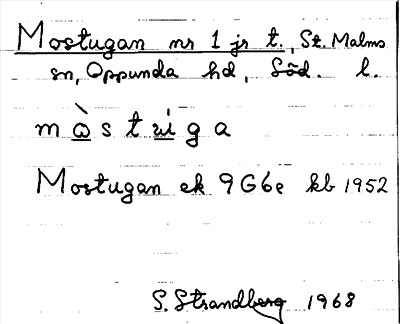 Mostugan nr 1 jr t., St. Malms
sn, Oppunda hd, Söd. l.
mὼstuiga
Mostugan ek 9G6e kb 1952
S. Strandberg 1968